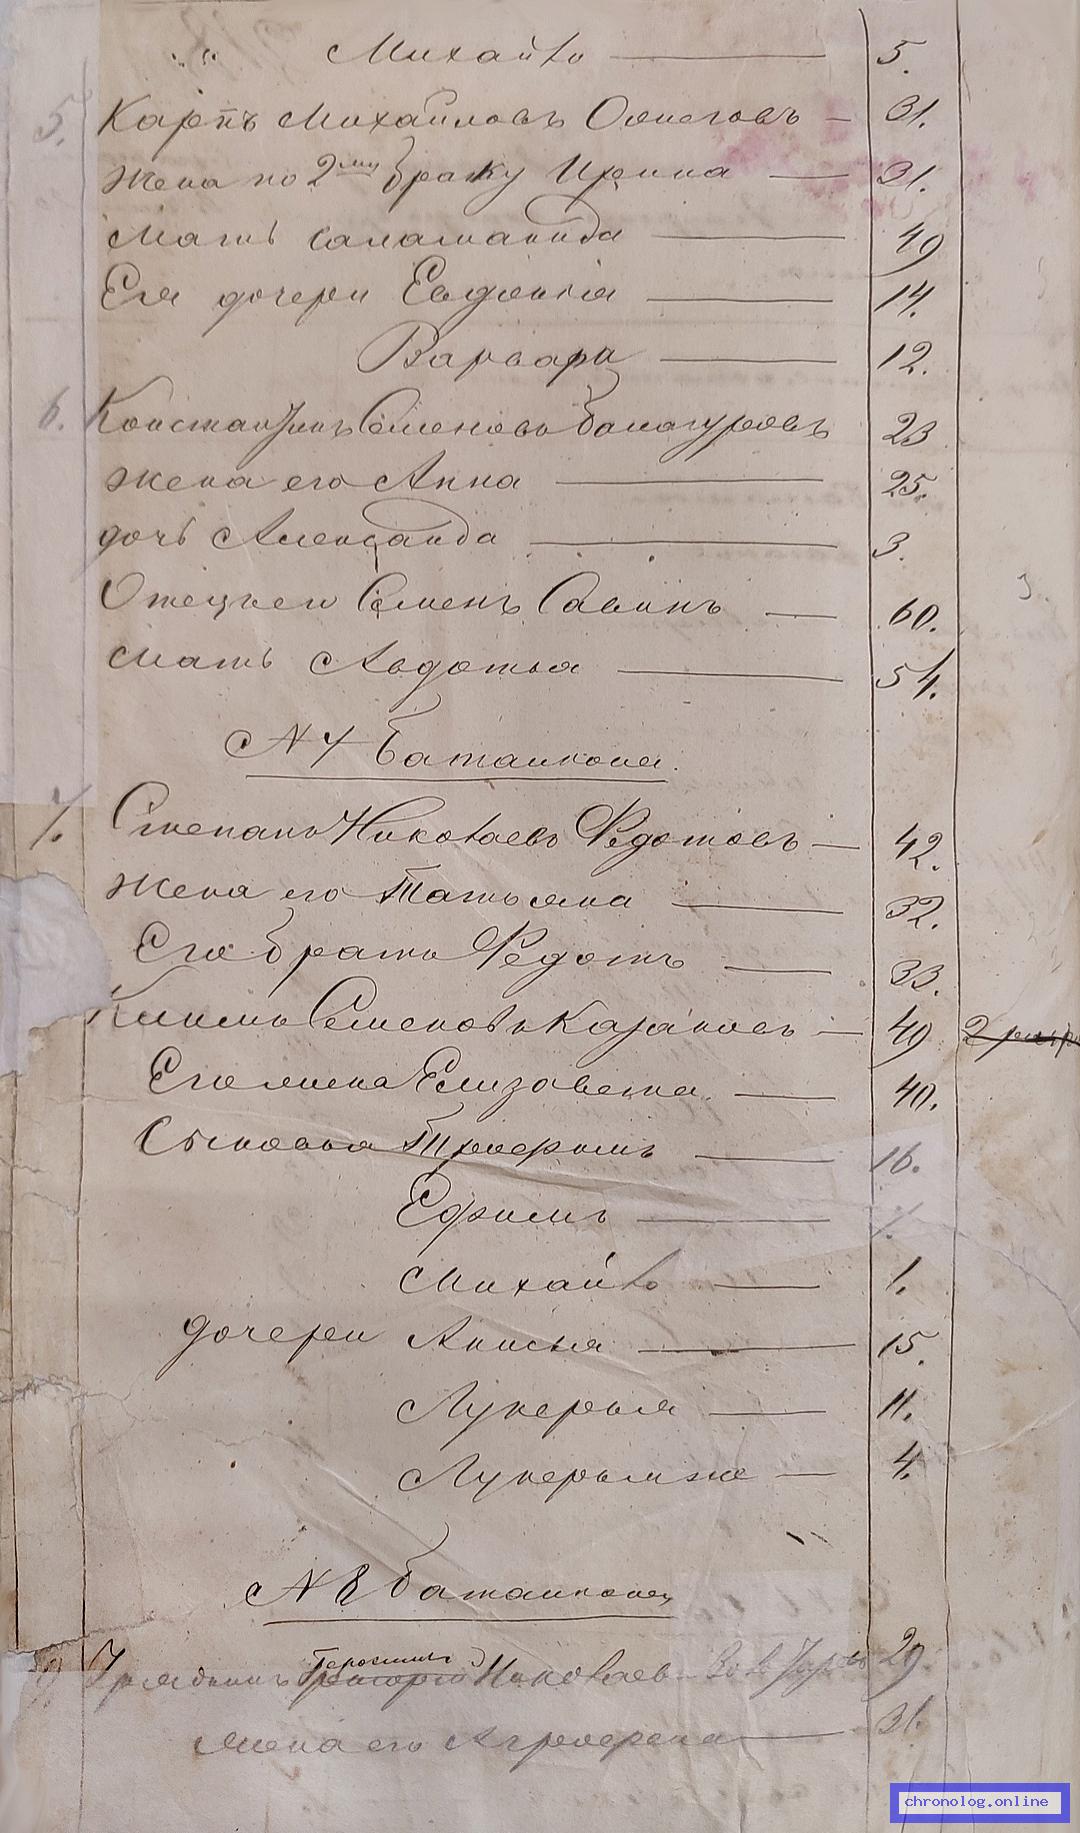 " " Михайло — 5.
5. Карпъ Михайловъ — 31.
Жена по 2му браку Ирина — 31.
Мать Саламанида — 49
Ея дочери Евдокія — 14.
Варвара — 12.
6. Константинъ Семеновъ Балагуровъ 23
Жена его Анна — 25.
дочь Александа — 3.
Отец Семенъ Савинъ — 60.
Мать Авдотья — 54.
№ 7 баталиона.
7. Степанъ Николаевъ Федотовъ — 42.
Жена его Татьяна — 32.
Его братъ Федотъ — 33.
Климъ Семеновъ Казаковъ — 49
Его жена Елизавета. — 40.
Сыновья Трофимъ — 16.
Ефимъ — 7.
Михайло — 1.
дочери Анисья — 15.
Лукерья — 11.
Лукерья же — 4.
№ 8 баталиона
Герасимъ
Урядникъ Григорій Николаев 29.
Жена его Агрофена — 31.
chronolog.online